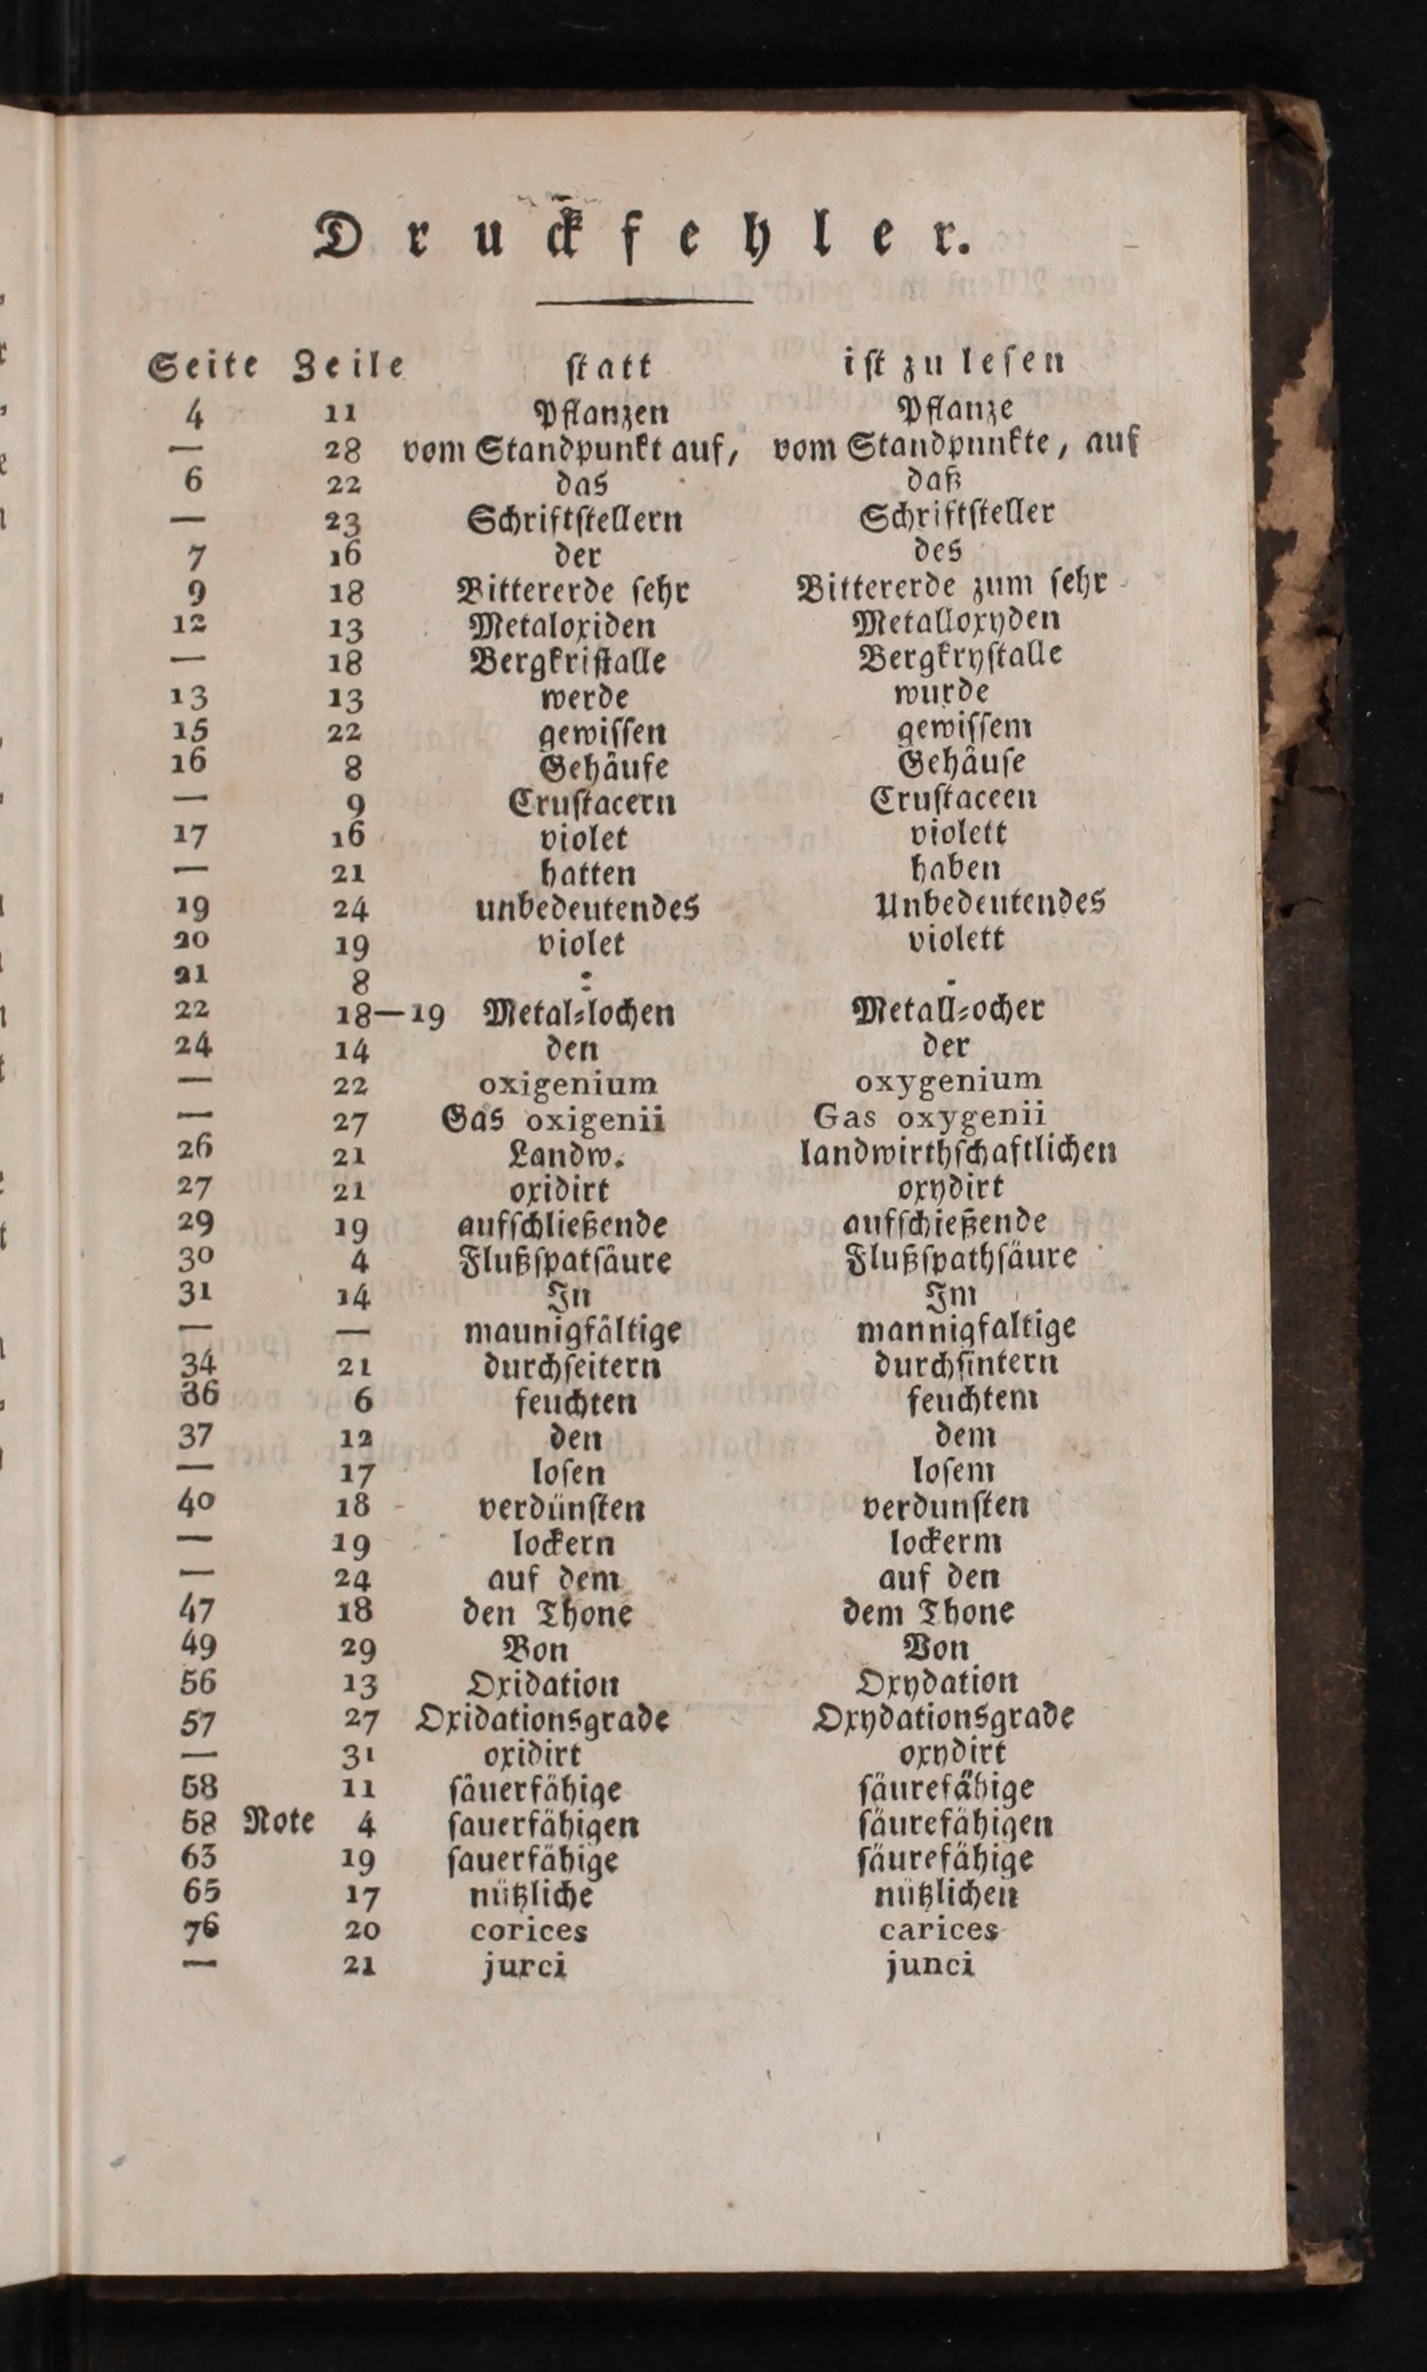 Druckfehler.
Seite Zeile ſtatt iſt zu leſen
4 11 Pflanzen Pflanze
— 28 vom Standpunkt auf, vom Standpunkte, auf
6 22 das daß
— 23 Schriftſtellern Schriftſteller
7 16 der des
9 18 Bittererde ſehr Bittererde zum ſehr
12 13 Metaloxiden Metalloxyden
— 18 Bergkriſtalle Bergkryſtalle
13 13 werde wurde
15 22 gewiſſen gewiſſem
16 8 Gehäufe Gehäuſe
— 9 Cruſtacern Cruſtaceen
17 16 violet violett
— 21 hatten haben
19 24 unbedeutendes Unbedeutendes
20 19 violet violett
21 8 : .
22 18—19 Metal⸗lochen Metall⸗ocher
24 14 den der
— 22 oxigenium oxygenium
— 27 Gas oxigenii Gas oxygenii
26 21 Landw. landwirthſchaftlichen
27 21 oxidirt oxydirt
29 19 aufſchließende aufſchießende
30 4 Flußſpatſäure Flußſpathſäure
31 14 In Im
— — maunigfältige mannigfaltige
34 21 durchſeitern durchſintern
36 6 feuchten feuchtem
37 12 den dem
— 17 loſen loſem
40 18 verdünſten verdunſten
— 19 lockern lockerm
— 24 auf dem auf den
47 18 den Thone dem Thone
49 29 Bon Von
56 13 Oxidation Oxydation
57 27 Oxidationsgrade Oxydationsgrade
— 31 oxidirt oxydirt
58 11 ſäuerfähige ſäurefähige
58 Note 4 ſauerfähigen ſäurefähigen
63 19 ſauerfähige ſäurefähige
65 17 nützliche nützlichen
76 20 corices carices
— 21 jurci junci